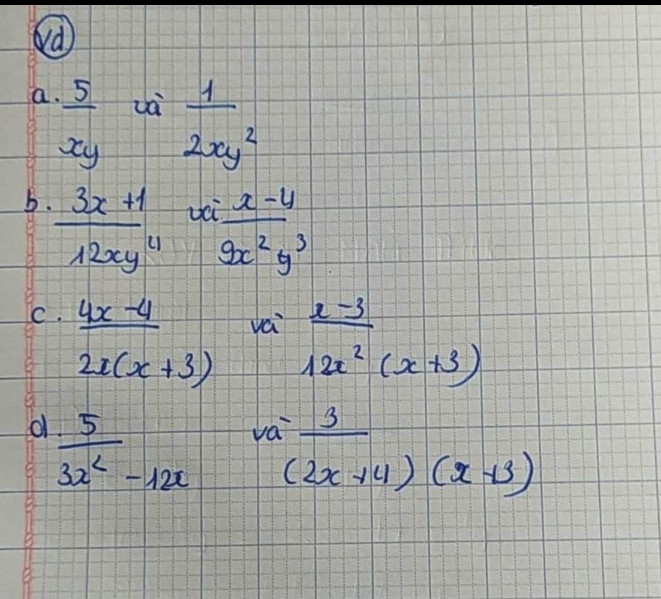 vd
a. 5/xy và 1/2xy²
b. 3x+1/12xy⁴ và x-4/9x²y³
c. 4x-4/2x(x+3) và x-3/12x²(x+3)
d. 5/3x²-12x và 3/(2x+4)(x+3)